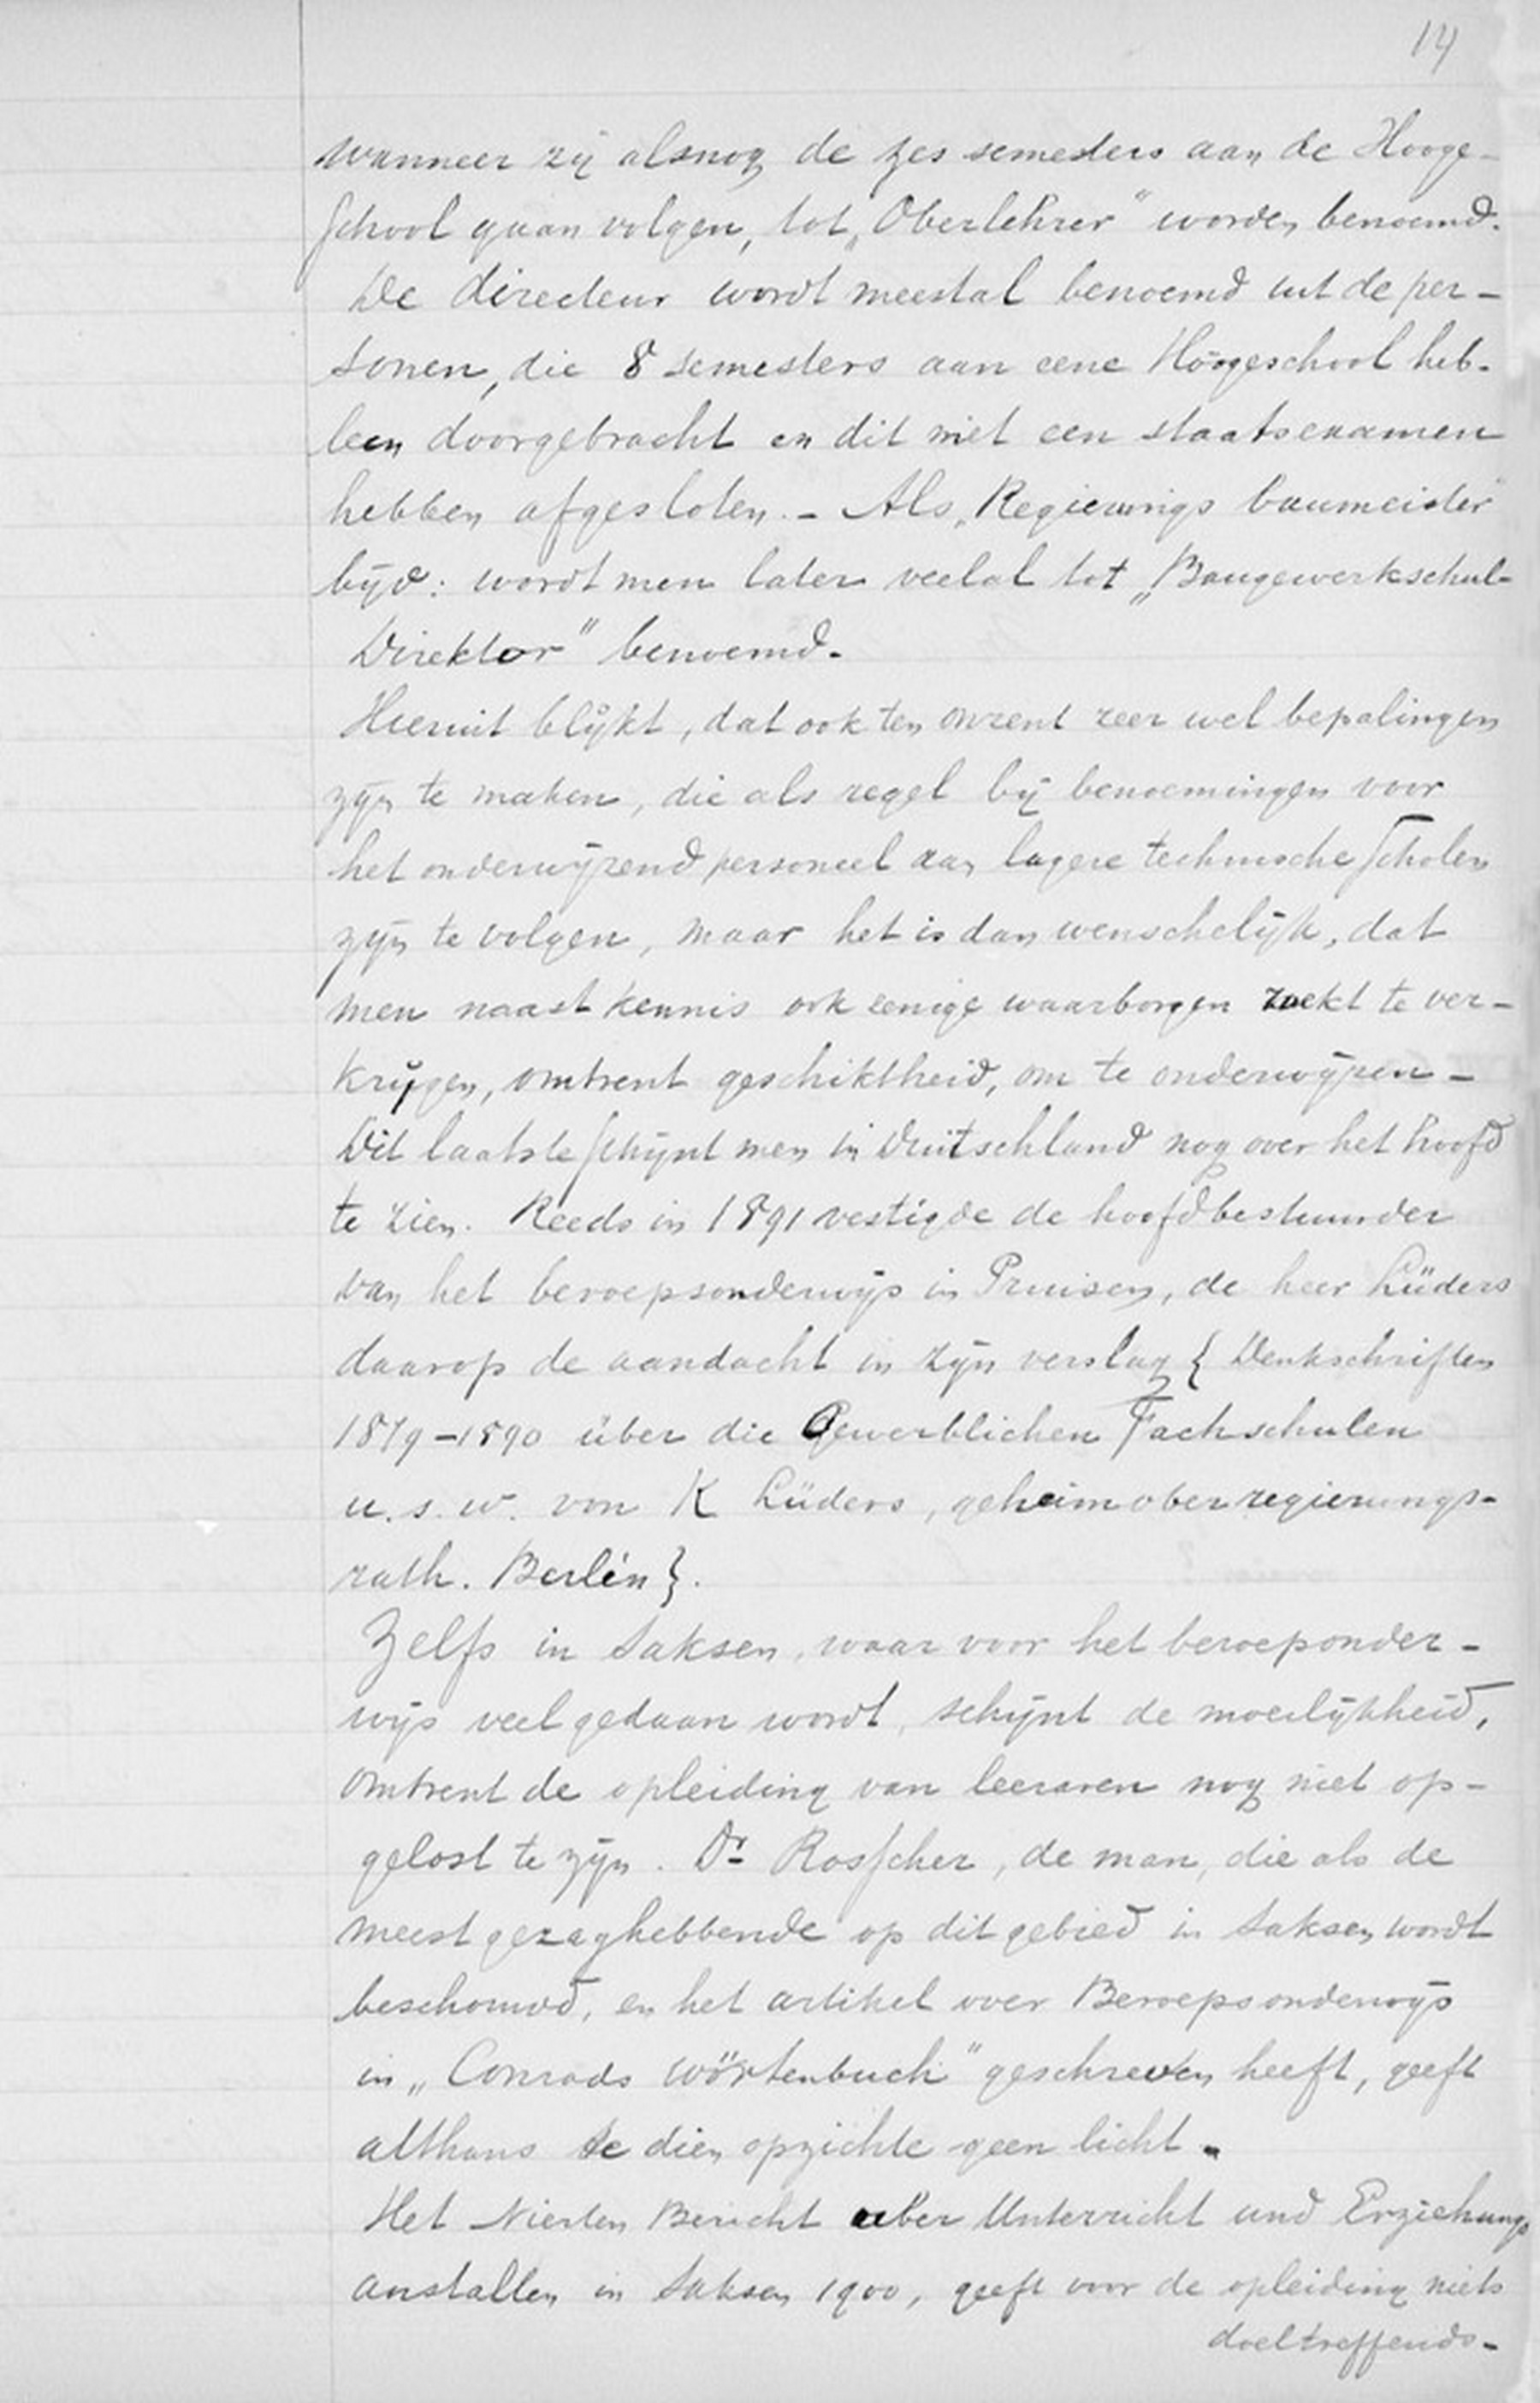 14
wanneer zij alsnog de zes semesters aan de Hooge-
school gaan volgen, tot „Oberlehrer" worden benoemd.
De directeur wordt meestal benoemd uit de per-
sonen, die 8 semesters aan eene Hoogeschool heb-
ben doorgebracht en dit met een staatsexamen
hebben afgesloten. - Als „Regierungs baumeister"
bijv: wordt men later veelal tot „Baugewerkschul-
Direktor" benoemd.
Hieruit blijkt, dat ook ten onzent zeer wel bepalingen
zijn te maken, die als regel bij benoemingen voor
het onderwijzend personeel aan lagere technische scholen
zijn te volgen, maar het is dan wenschelijk, dat
men naast kennis ook eenige waarborgen zoekt te ver-
krijgen, omtrent geschiktheid, om te onderwijzen -
Dit laatste schijnt men in Duitschland nog over het hoofd
te zien. Reeds in 1891 vestigde de hoofdbestuurder
van het beroepsonderwijs in Pruisen, de heer Lüders
daarop de aandacht in zijn verslag { Denkschriften
1879-1890 über die Gewerblichen Fachschulen
u. s. w. von K Lüders, geheimoberregierungs-
rath. Berlin }.
Zelfs in Saksen, waar voor het beroeponder-
wijs veel gedaan wordt, schijnt de moeilijkheid,
omtrent de opleiding van leeraren nog niet op-
gelost te zijn. Dr Rosscher, de man, die als de
meest gezaghebbende op dit gebied in Saksen wordt
beschouwd, en het artikel over Beroepsonderwijs
in „Conrads wörtenbuch" geschreven heeft, geeft
althans te dien opzichte geen licht.
Het Vierten Bericht ueber Unterricht und Erziehungs
anstalten in Saksen 1900, geeft voor de opleiding niets
doeltreffends-